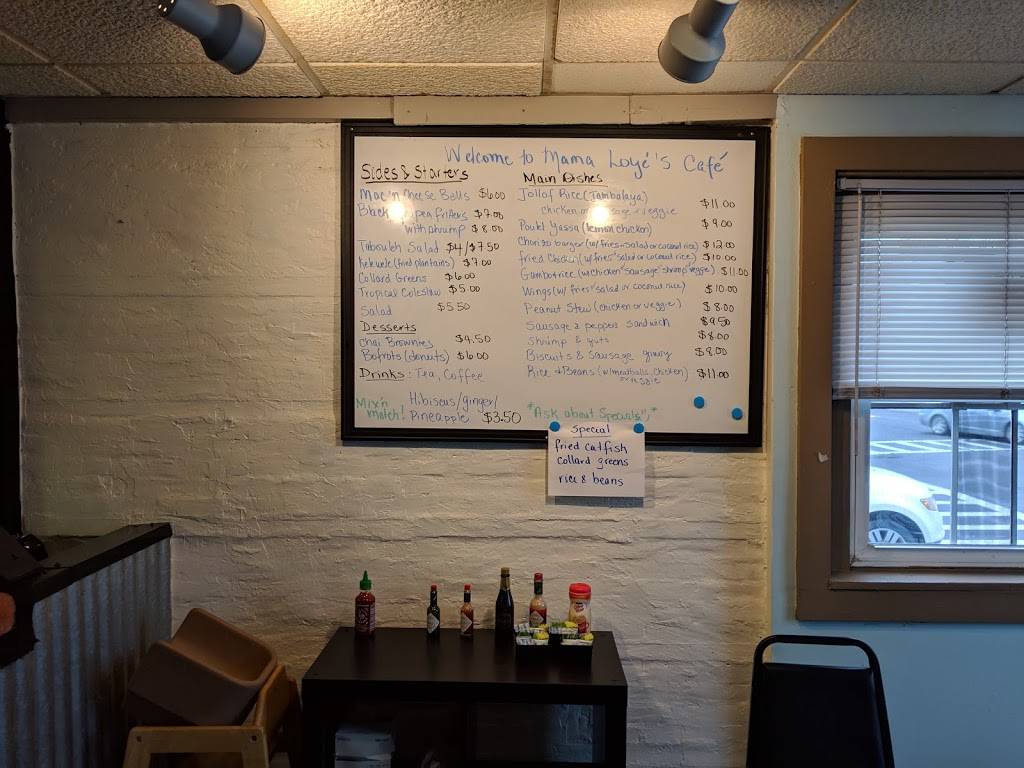 Welcome to Mama Loyé's Café
Sides & Starters
Mac 'n Cheese Balls $6.00
Black pea fritters $7.00
with shrimp $8.00
Tabouleh Salad $4/$7.50
Kelewele (fried plantains) $7.00
Collard Greens $6.00
Tropical Coleslaw $5.00
Salad $5.50
Desserts
Chai Brownies $4.50
Bofrots (donuts) $6.00
Drinks: Tea, Coffee
Mix'n match!
Hibiscus/ginger/
Pineapple $3.50
Main Dishes
Jollof Rice (Jambalaya)
chicken or sausage veggie $11.00
Poulet Yassa (lemon chicken) $9.00
Chorizo burger (w/ fries or salad or coconut rice) $12.00
fried Chicken (w/ fries salad or coconut rice) $10.00
Gumbo + rice (w/ chicken sausage shrimp veggie) $11.00
Wings (w/ fries salad or coconut rice) $10.00
Peanut Stew (chicken or veggie) $8.00
Sausage & peppers sandwich $9.50
Shrimp & grits $8.00
Biscuits & Sausage gravy $8.00
Rice & Beans (w/ meatballs, chicken) $11.00
or veggie
*Ask about Specials*
Special
fried catfish
collard greens
rice & beans